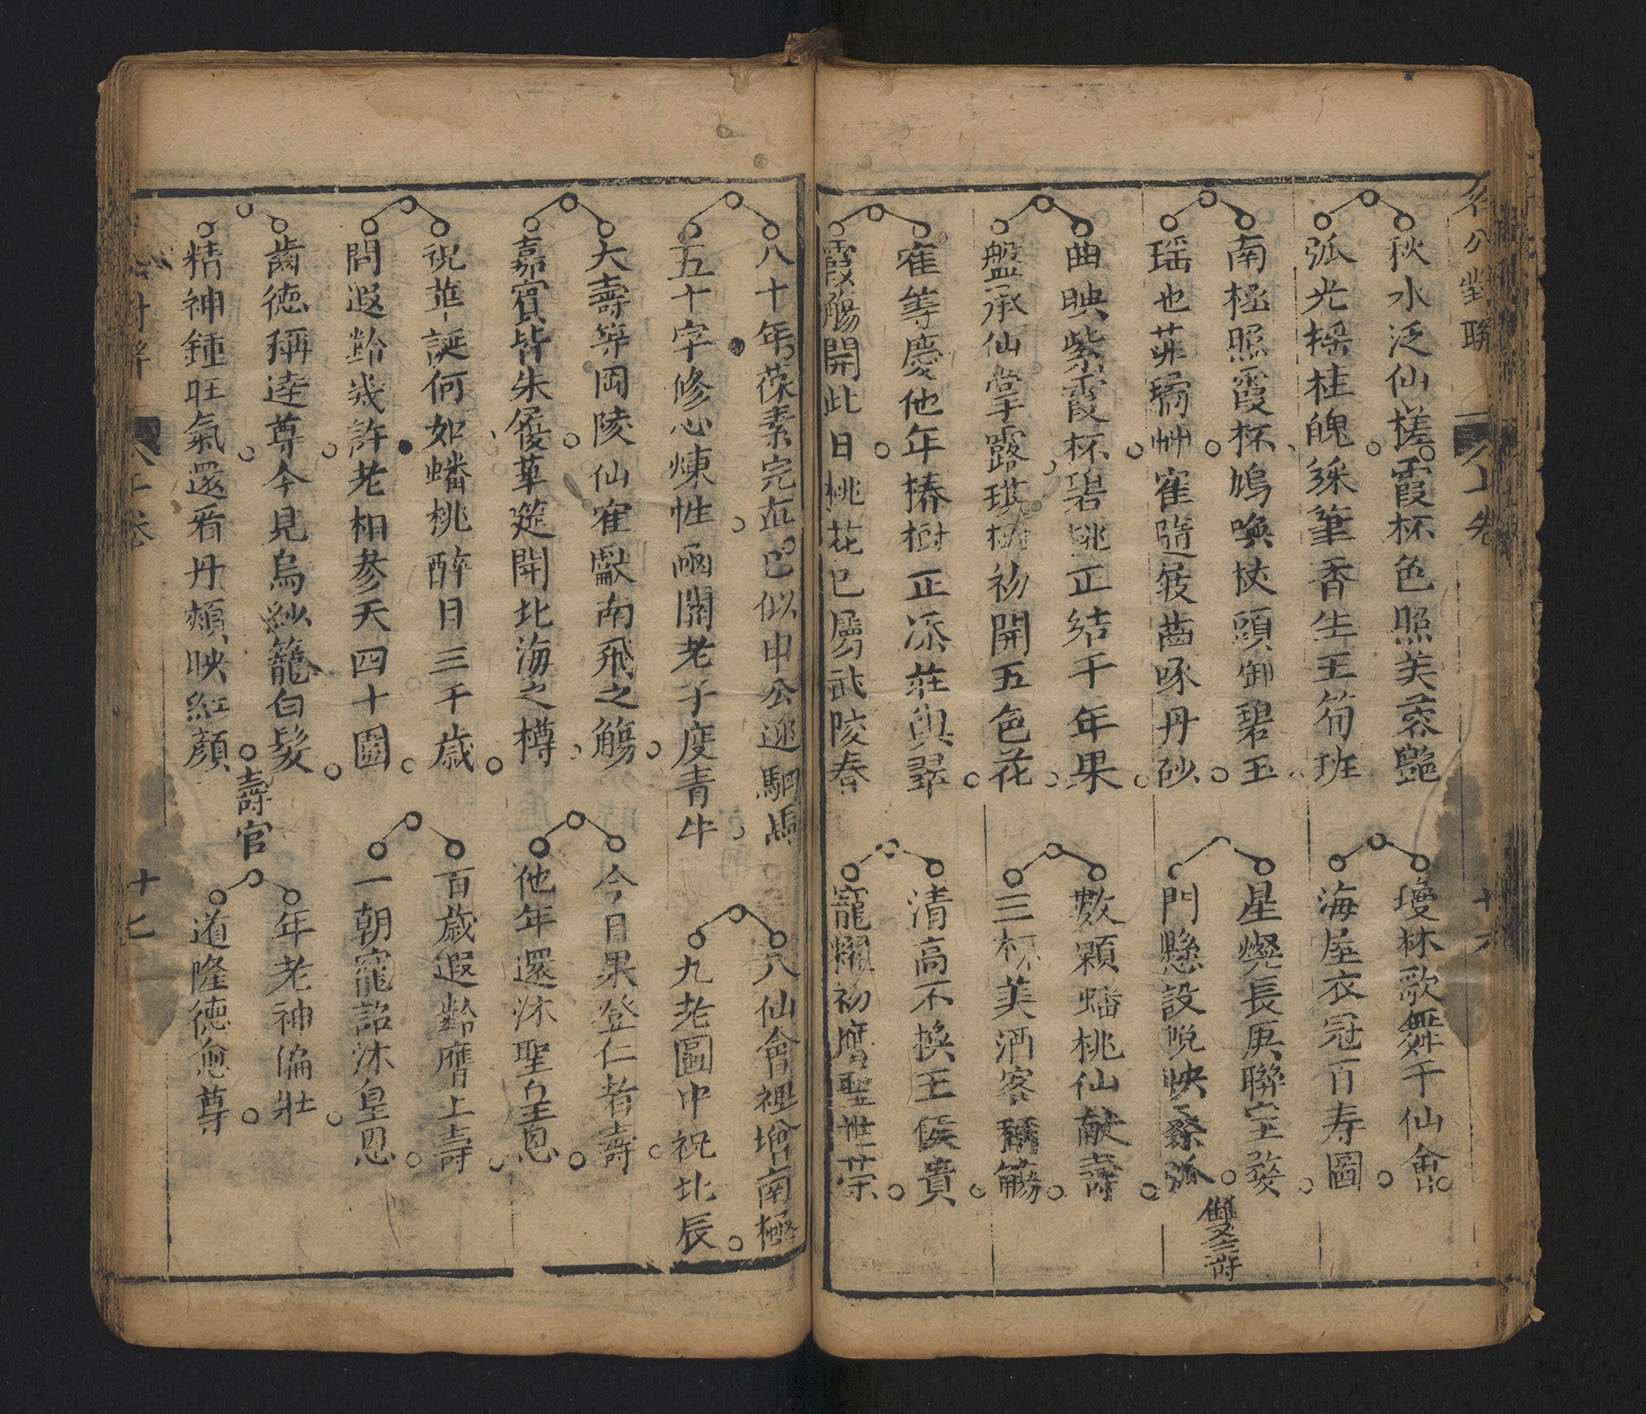 秋水泛仙槎霞杯色照芙蓉艷
弧光搖桂魄綵筆香生玉筍班
瓊林歌舞千仙會
海屋衣冠百寿圖
南極照霞杯鳩喚杖頭御碧玉
瑶池菲璚艸寉隨屐齒啄丹砂
星燦長庚聯宝婺
門懸設帨映桑弧
雙壽
曲映紫霞杯碧桃正結千年果
盤承仙掌露琪樹初開五色花
數顆蟠桃仙献壽
三杯美酒客稱觴
寉等慶他年椿樹正添莊與翠
霞觴開此日桃花已屬武陵春
清高不換王侯貴
寵耀初膺聖世荣
八十年葆素完真已似申公迎駟馬
五十字修心煉性函關老子度青牛
八仙會裡增南極
九老圖中祝北辰
大壽等岡陵仙寉獻南飛之觴
嘉賓皆朱履華筵開北海之樽
今日果登仁者壽
他年還沐聖皇恩
祝華誕何如蟠桃醉日三千歳
問遐齡幾許老柏参天四十圍
百歳遐齡膺上壽
一朝寵詔沐皇恩
齒徳稱逹尊今見烏紗籠白髪
精神鍾旺氣還看丹頰映紅顔
壽官
年老神偏壯
道隆徳愈尊
上卷
十七